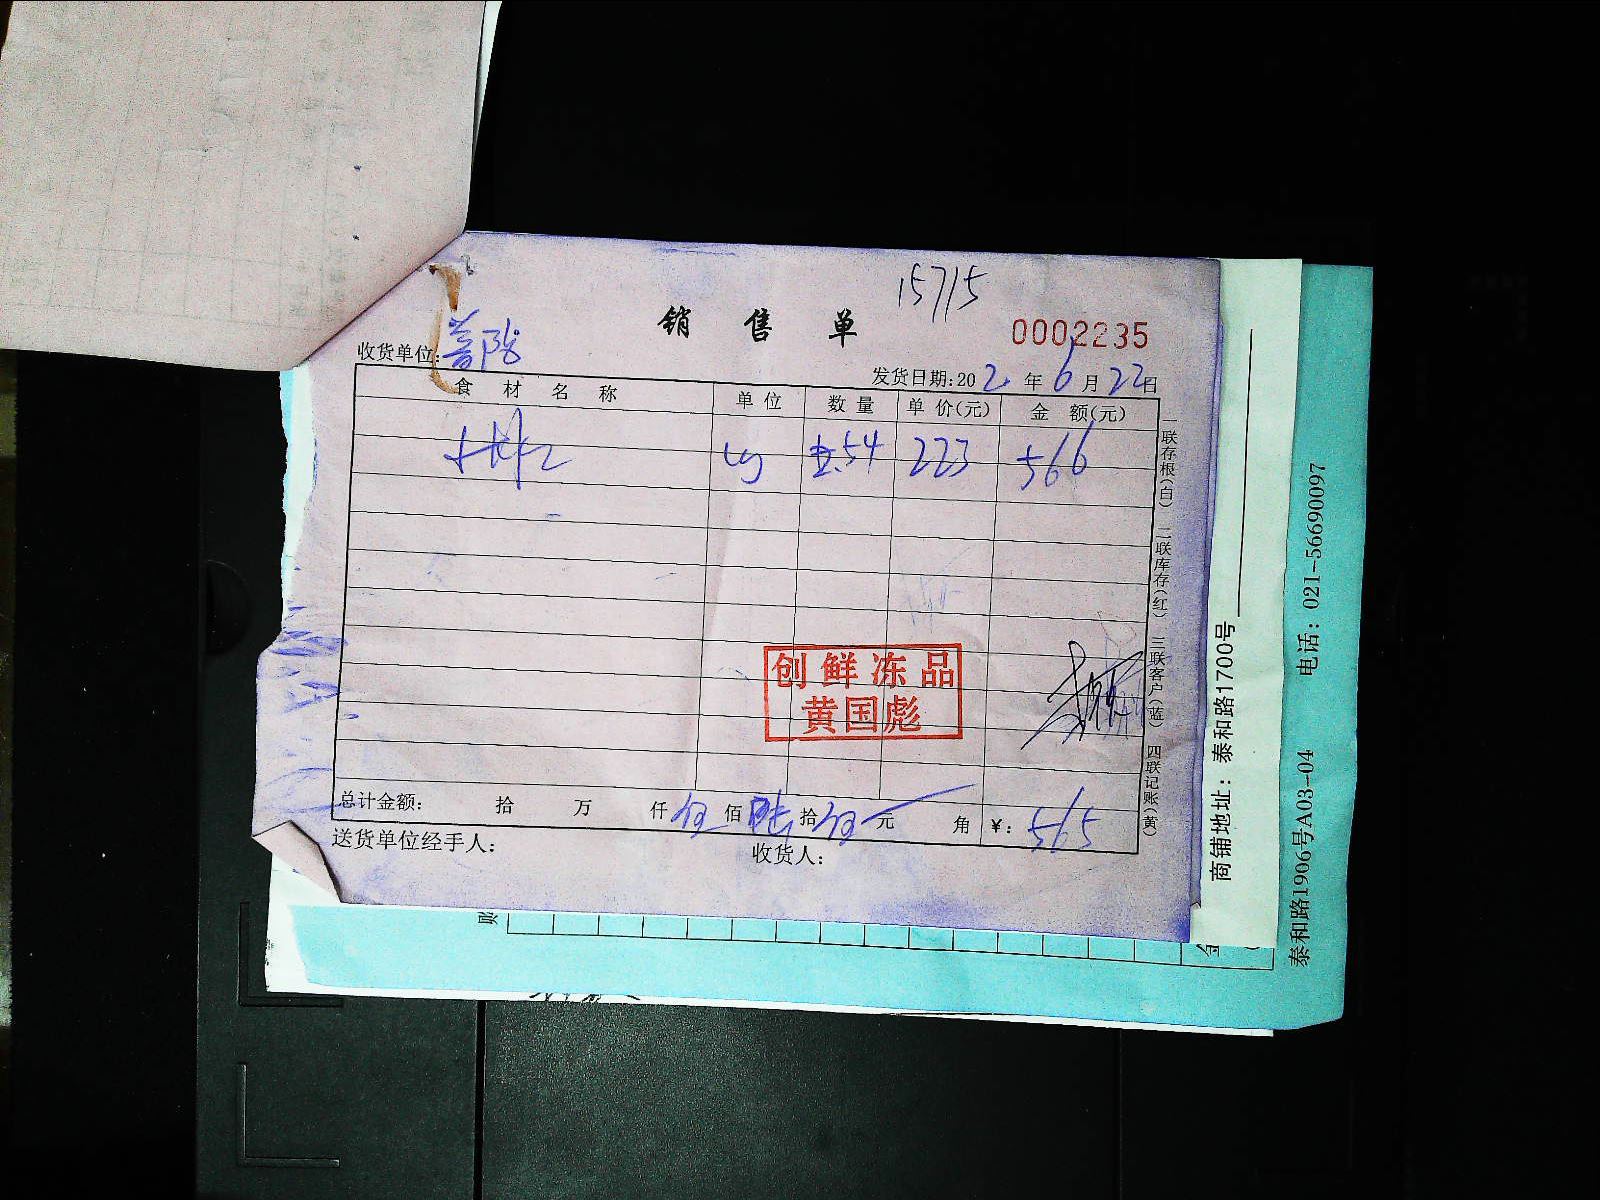 15715
销售单
0002235
收货单位: 普陀
发货日期:202 年 6 月 22 日
食材名称 单位 数量 单价(元) 金额(元)
kg 2.54 223 566
创鲜冻品
黄国彪
总计金额: 拾 万 仟 伍 佰 陆 拾 伍 元 角 ¥: 565
送货单位经手人: 收货人:
一联存根(白) 二联库存(红) 三联客户(蓝) 四联记账(黄)
商铺地址: 泰和路1700号
泰和路1906号A03-04 电话: 021-56690097
账
金